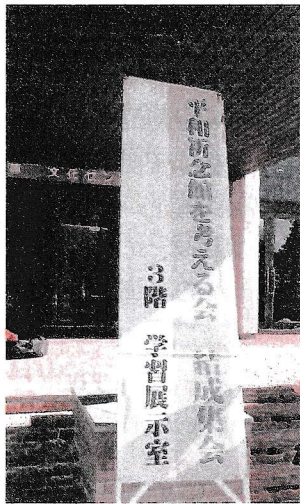 平和祈念館を考える会 結成集会
3階 学習展示室
文化セン